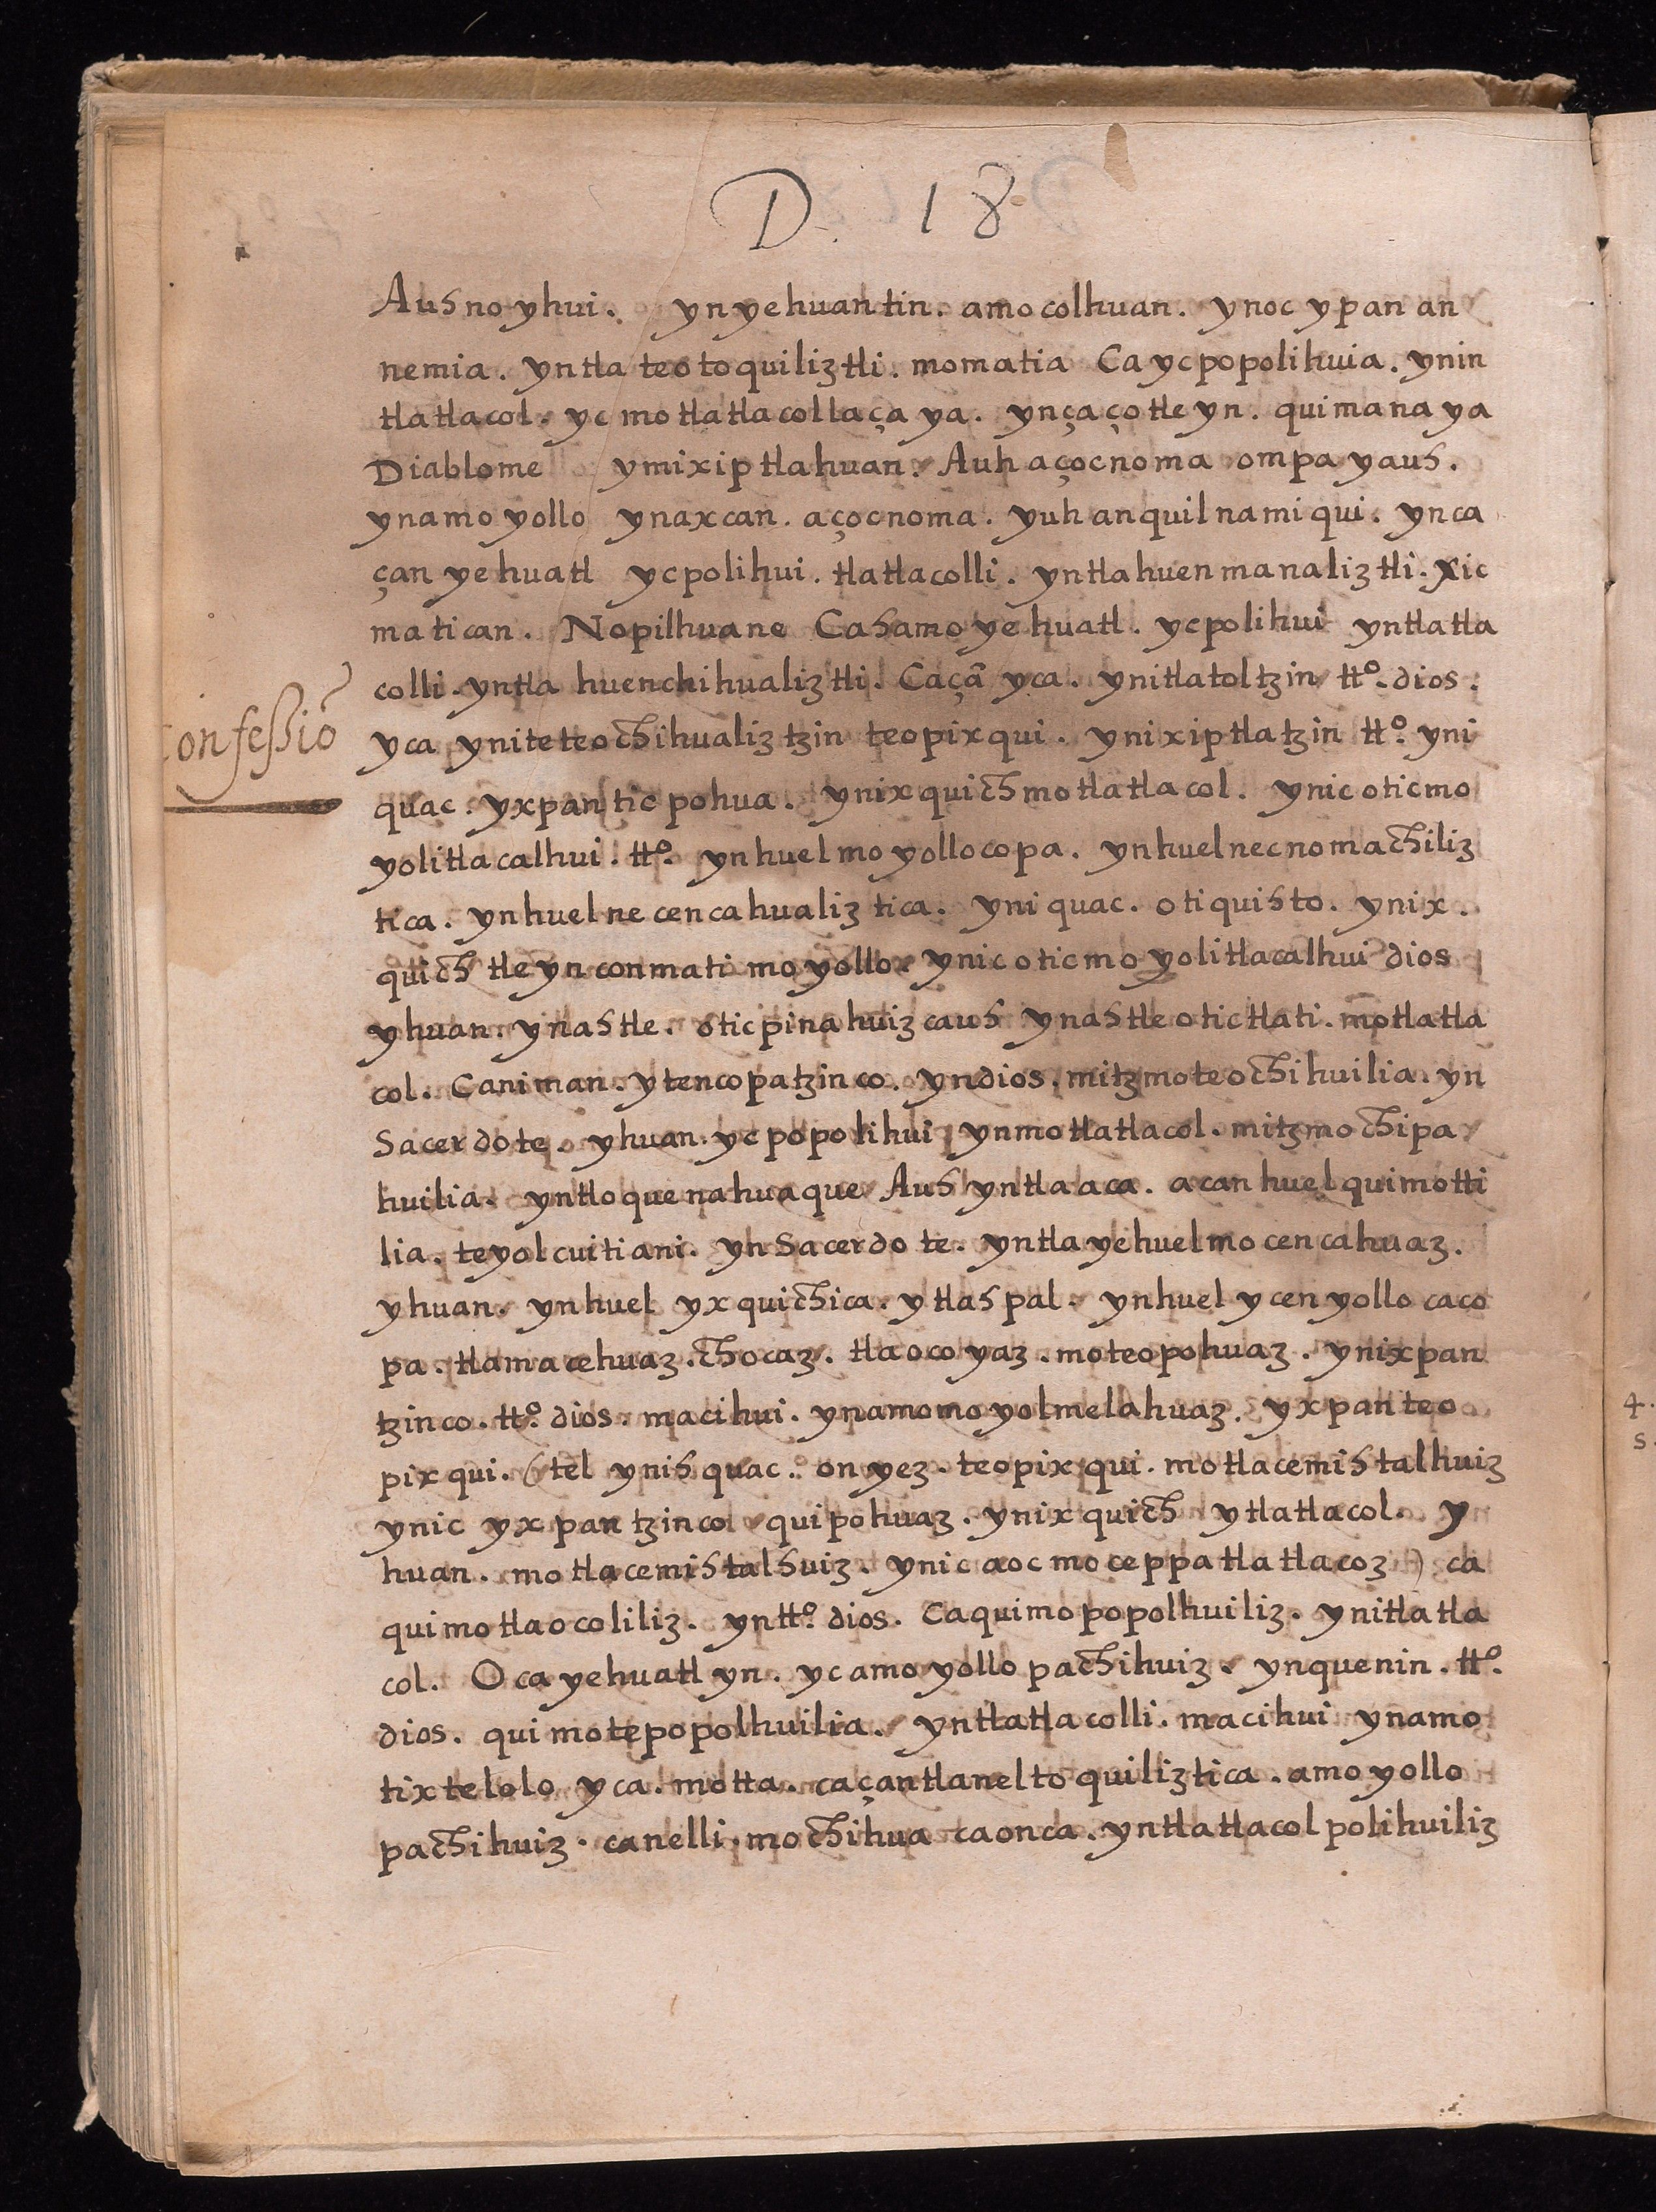 D. 18
Auh no yhui. yn yehuantin. amocolhuan. yn oc ypan an
nemia. yn tlateotoquiliztli. momatia Ca yc popolihuia. yn in
tlatlacol. yc motlatlacollaçaya. yn çaço tleyn. quimanaya
Diablome ymixiptlahuan. Auh aço c noma ompa yauh.
yn amoyollo yn axcan. aço c noma. yuh anquilnamiqui. yn ca
çan yehuatl yc polihui. tlatlacolli. yn tlahuenmanaliztli. xic
matican. Nopilhuane Cahamo yehuatl. yc polihui yn tlatla
colli. yn tlahuenchihualiztli. Ca çã yca. yn itlatoltzin tto. dios.
Confessiõ
yca yn iteteochihualiztzin teopixqui. yn ixiptlatzin tto. yni
quac. yxpan ticpohua. yn ixquich motlatlacol. ynic oticmo
yolitlacalhui. tto. yn huel moyollocopa. yn huel necnomachiliz
tica. yn huel necencahualiztica. yniquac. otiquihto. yn ix.
quich tleyn conmati moyollo. ynic oticmoyolitlacalhui dios
yhuan. yn ahtle. oticpinahuizcauh yn ahtle otictlati. motlatla
col. Ca niman. ytencopatzinco. yn dios. mitzmoteochihuilia. yn
Sacerdote. yhuan. yc popolihui yn motlatlacol. mitzmochipa
huilia. yn tloque nahuaque Auh yntla aca. acan huel quimotti
lia. teyolcuitiani. yn Sacerdote. yntla ye huel mocencahuaz.
yhuan. yn huel yxquich ica. ytlahpal. yn huel ycenyollocaco
pa. tlamacehuaz. chocaz. tlaocoyaz. moteopohuaz. yn ixpan
tzinco. tto. dios. macihui. yn amo moyolmelahuaz. yxpan teo
pixqui. (tel yn ihquac. onyez. teopixqui. motlacemihtalhuiz
ynic yxpantzinco quipohuaz. yn ixquich ytlatlacol. y
huan. motlacemihtalhuiz. ynic aocmo ceppa tlatlacoz) ca
quimotlaocoliliz. yn tto. dios. Ca quimopopolhuiliz. yn itlatla
col. O ca yehuatl yn. yc amoyollo pachihuiz. yn quenin. tto.
dios. quimotepopolhuilia. yn tlatlacolli. macihui yn amo
tixtelolo yca. motta. ca çan tlaneltoquiliztica. amoyollo
pachihuiz. ca nelli. mochihua ca onca. yn tlatlacolpolihuiliz